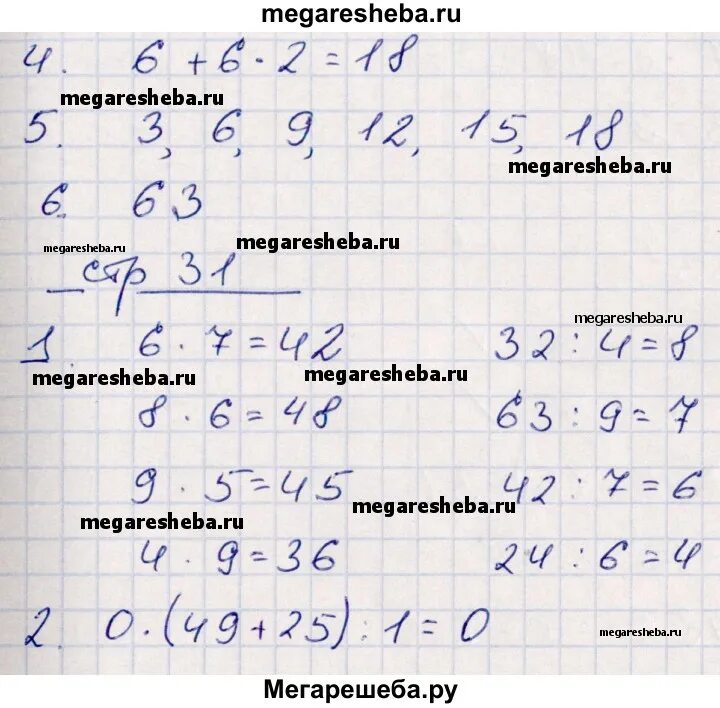 megaresheba.ru
4. 6 + 6 · 2 = 18
megaresheba.ru
5. 3, 6, 9, 12, 15, 18
megaresheba.ru
6. 63
megaresheba.ru megaresheba.ru
стр 31
megaresheba.ru
1. 6 · 7 = 42 32 : 4 = 8
megaresheba.ru megaresheba.ru
8 · 6 = 48 63 : 9 = 7
9 · 5 = 45 42 : 7 = 6
megaresheba.ru megaresheba.ru
4 · 9 = 36 24 : 6 = 4
2. 0 · (49 + 25) : 1 = 0
megaresheba.ru
Мегарешеба.ру